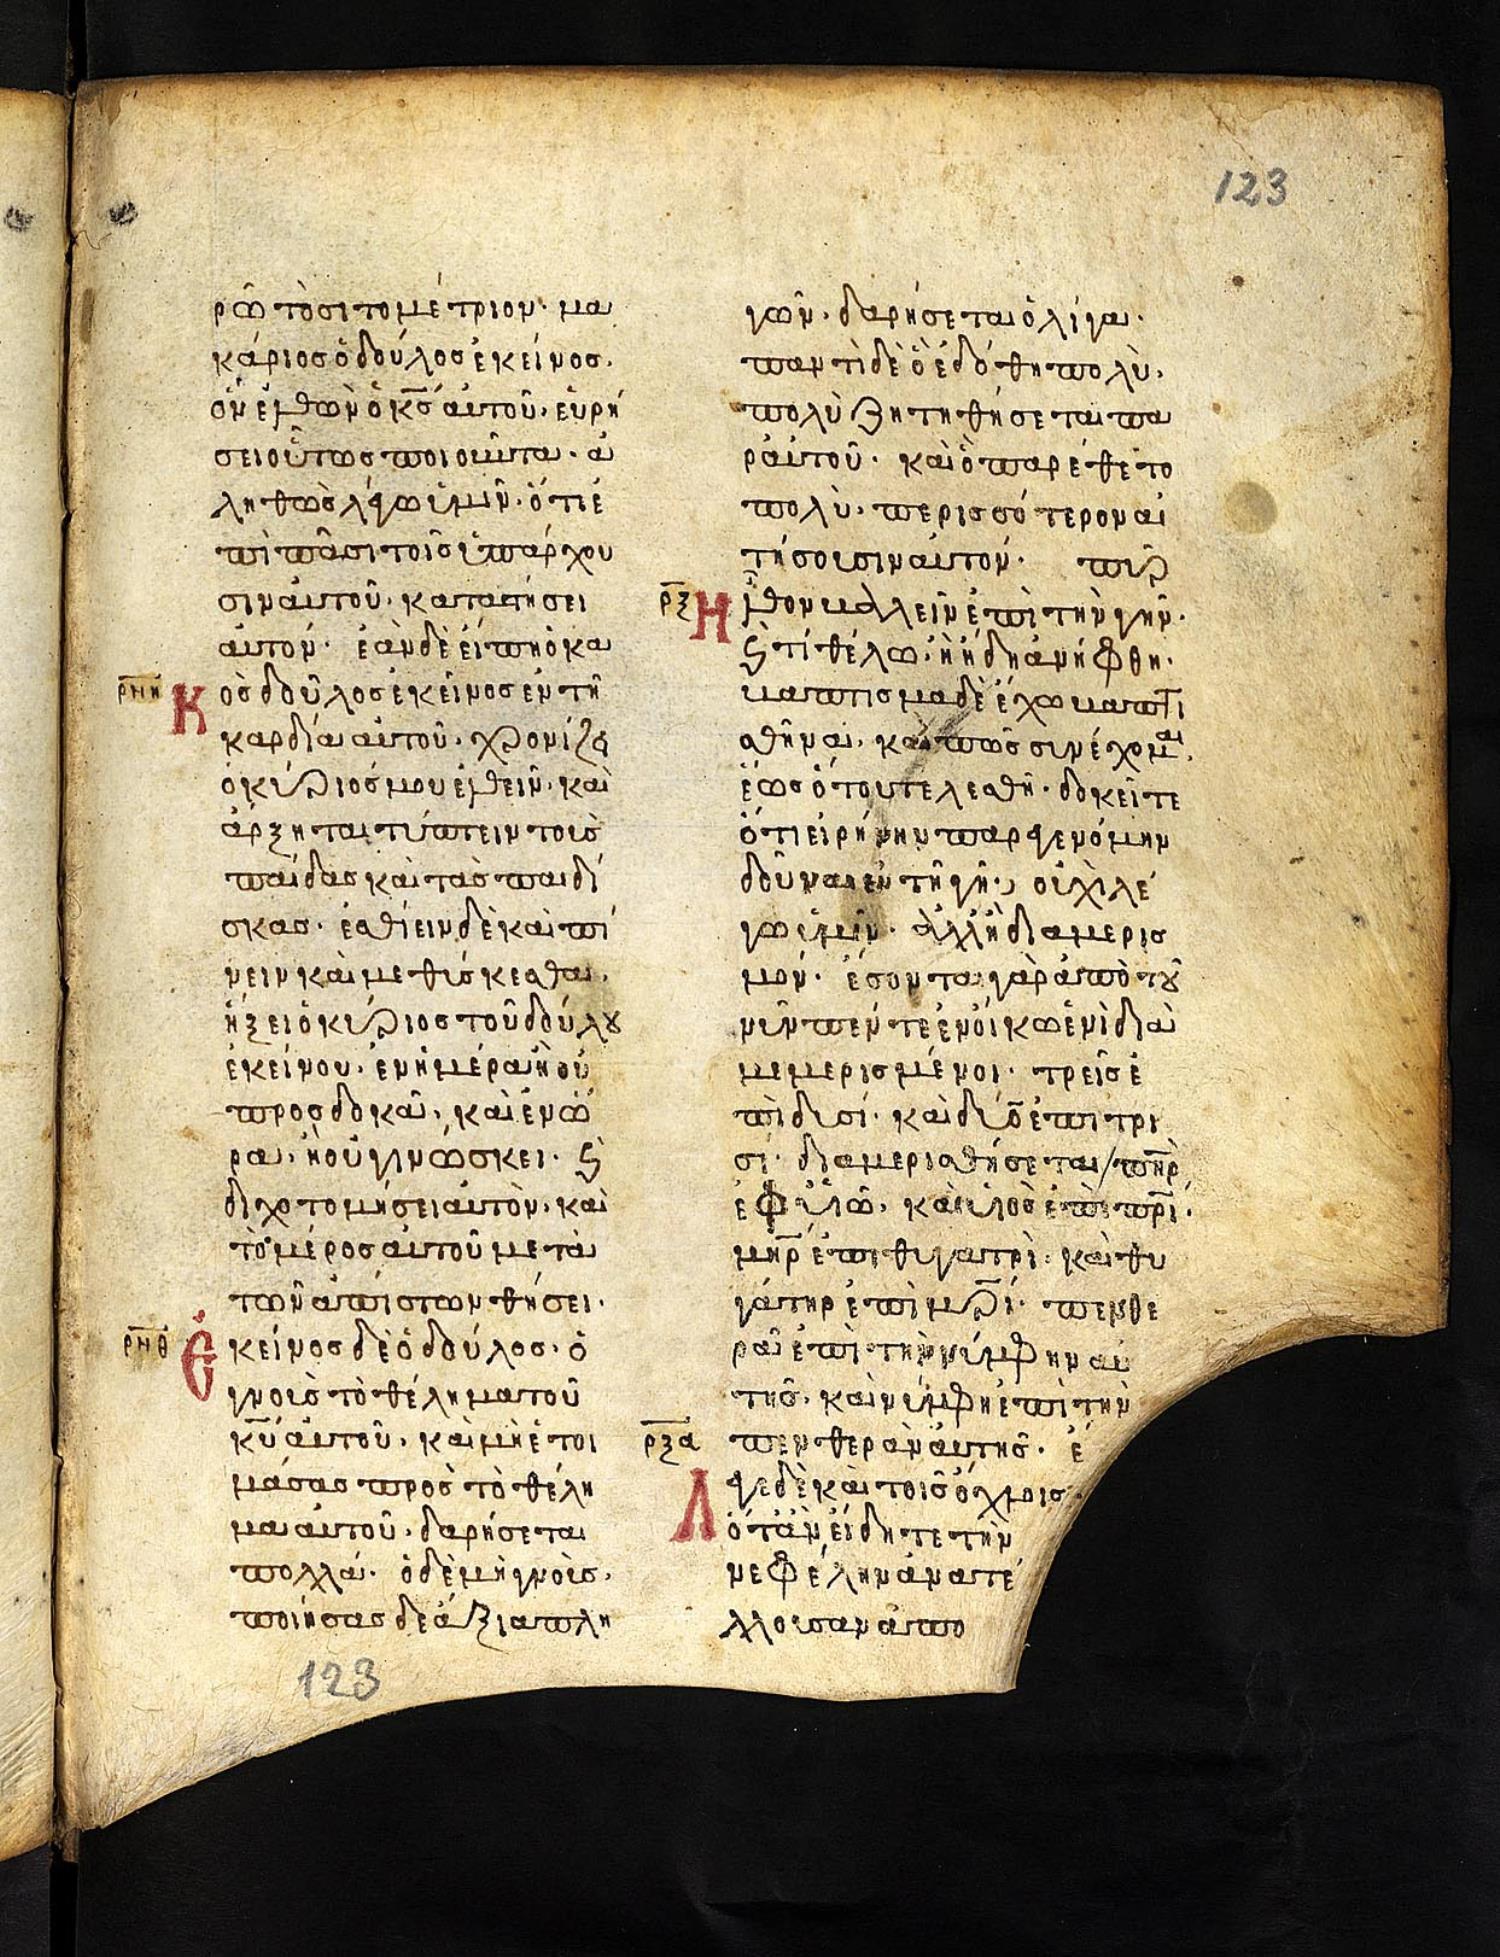 123
ρῶ τὸ σιτομέτριον· μα
κάριος ὁ δοῦλος ἐκεῖνος·
ὃν ἐλθὼν ὁ κ̅ς̅ αὐτοῦ, εὑρή
σει οὕτως ποιοῦντα· ἀ
ληθῶς λέγω ὑμῖν· ὅτι ἐ
πὶ πᾶσι τοῖς ὑπάρχου
σιν αὐτοῦ, καταστήσει
αὐτόν· ἐὰν δὲ εἴπη ὁ κα
ρ̅ν̅η̅ Κ ὸς δοῦλος ἐκεῖνος ἐν τῆ
καρδία αὐτοῦ, χρονίζει
ὁ κύριός μου ἐλθεῖν, καὶ
ἄρξηται τύπτειν τοὺς
παῖδας καὶ τὰς παιδί
σκας· ἐσθίειν δὲ καὶ πί
νειν καὶ μεθύσκεσθαι,
ἥξει ὁ κύριος τοῦ δούλου
ἐκείνου, ἐν ἡμέρα ἧ οὐ
προσδοκᾶ, καὶ ἐν ὥ
ρα, ἧ οὐ γινώσκει· ϛ̀
διχοτομήσει αὐτὸν, καὶ
τὸ μέρος αὐτοῦ μετὰ
τῶν ἀπίστων θήσει·
ρ̅ν̅θ̅ Ἐ κεῖνος δὲ ὁ δοῦλος· ὁ
γνοὺς τὸ θέλημα τοῦ
κ̅υ̅ αὐτοῦ, καὶ μὴ ἑτοι
μάσας πρὸς τὸ θέλη
μα αὐτοῦ, δαρήσεται
πολλά· ὁ δὲ μὴ γνοὺς,
ποιήσας δὲ ἄξια πλη
123
γῶν, δαρήσεται ὀλίγα·
παντὶ δὲ ὧ ἐδόθη πολὺ,
πολὺ ζητηθήσεται πα
ρ' αὐτοῦ· καὶ ὧ παρέθετο
πολὺ, περισσότερον αἰ
τήσουσιν αὐτόν· πῦρ
ρ̅ξ̅ Ἦ λθον βαλεῖν ἐπὶ τὴν γῆν·
ϛ̀ τί θέλω, εἰ ἤδη ἀνήφθη·
βάπτισμα δὲ ἔχω βαπτι
σθῆναι, καὶ πῶς συνέχομαι,
ἕως ὅτου τελεσθῆ· δοκεῖτε
ὅτι εἰρήνην παρεγενόμην
δοῦναι ἐν τῆ γῆ; οὐχὶ λέ
γω ὑμῖν· ἀλλ' ἢ διαμερισ
μόν· ἔσονται γὰρ ἀπὸ τοῦ
νῦν πέντε ἐν οἴκω ἑνὶ δια
μεμερισμένοι· τρεῖς ἐ
πὶ δυσί· καὶ δύο ἐπὶ τρι
σί· διαμερισθήσεται/ π̅η̅ρ̅
ἐφ' υἱῶ, καὶ υἱὸς ἐπὶ π̅ρ̅ί̅·
μ̅η̅ρ̅ ἐπὶ θυγατρὶ· καὶ θυ
γάτηρ ἐπὶ μ̅ρ̅ί̅· πενθε
ρὰ ἐπὶ τὴν νύμφην αὐ
τῆς, καὶ νύμφη ἐπὶ τὴν
ρ̅ξ̅α̅ πενθερὰν αὐτῆς· ἔ
Λ γε δὲ καὶ τοῖς ὄχλοις·
ὅταν εἴδητε τὴν
νεφέλην ἀνατέ
λλουσαν ἀπὸ